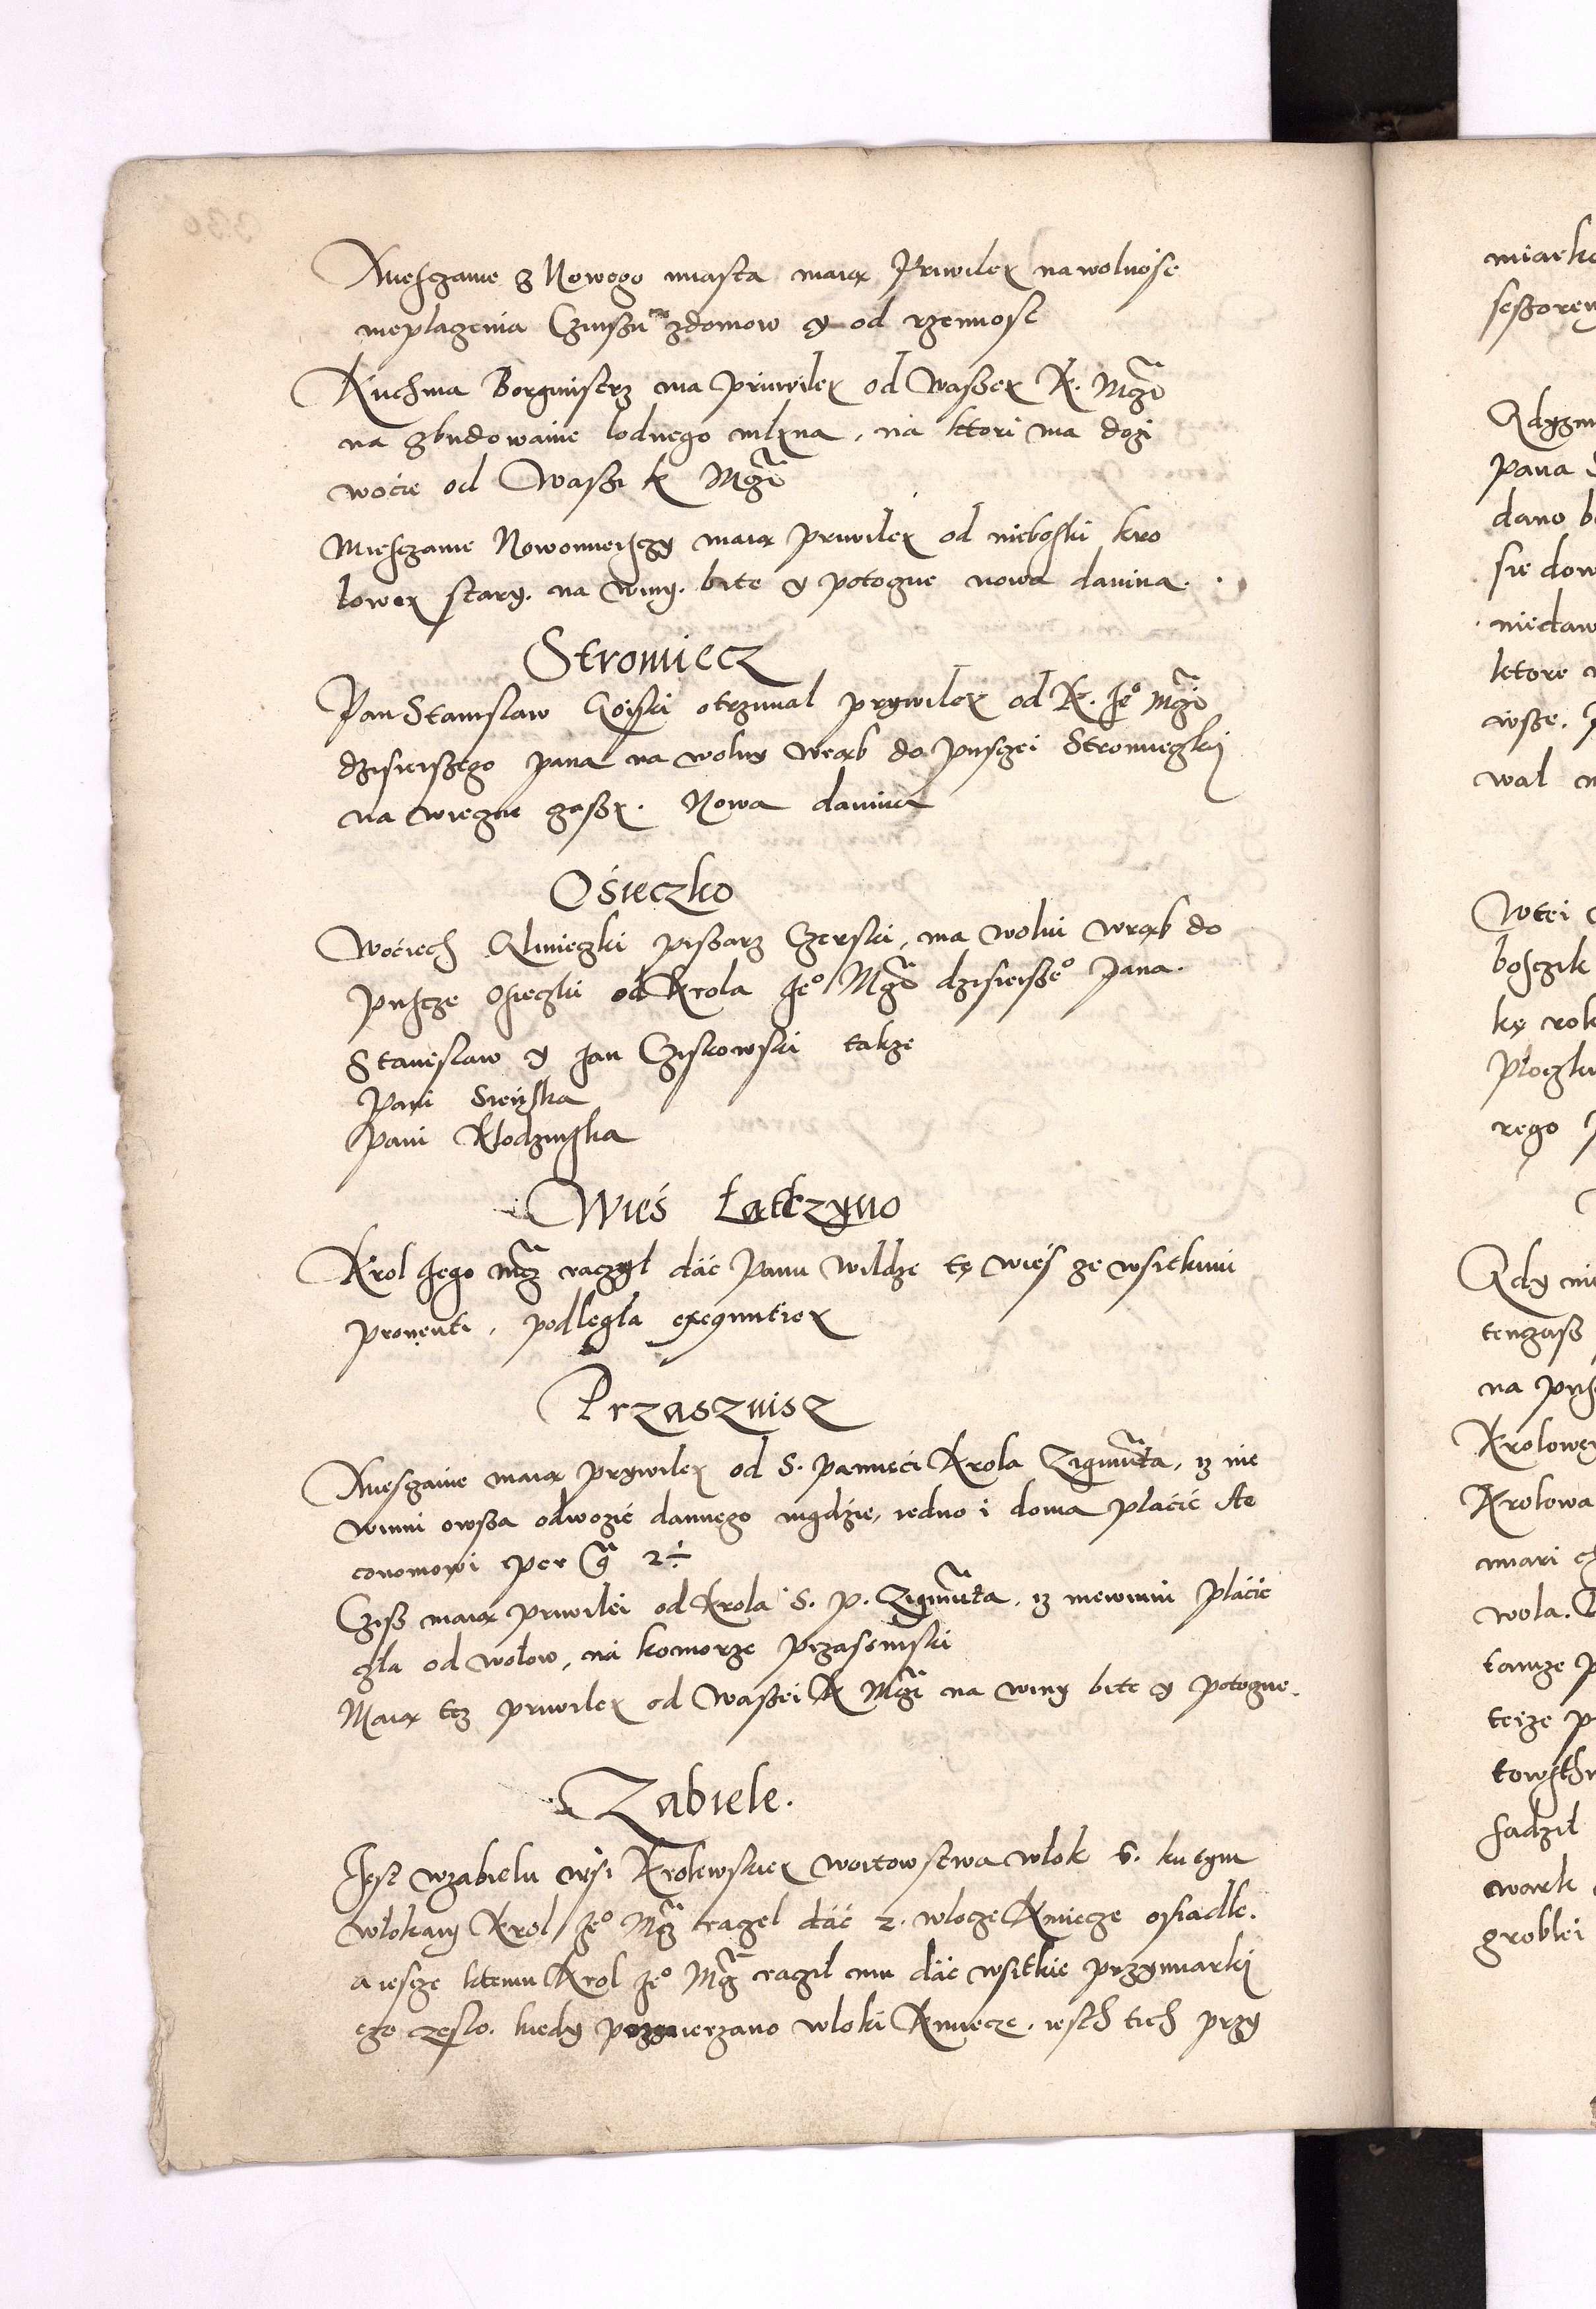 Miesczanie z Nowego miasta maią Priwilei na wolnosc
nieplaczenia Czinszu z domow y od rzemiosl
Kuchma Borgmistrz ma priwilei od Waszei K. Mczi
na zbudowanie lodnego mlyna, na ktori ma dozi
wocie od Waszi K Mczi
Miesczanie Nowomieisczy maią priwilei od nieboski kro
lowei stary. na winy. bite y potoczne nowa danina.
Stromiecz
Pan Stanislaw Goiski otrzimal prziwilei od K. Jeo Mczi
dzisieiszego pana na wolny wrąb do pusczei Stromieczkii
na wieczne czassy. Nowa danina
Ośieczko
Wociech Gliniezki pisarz Czerski, ma wolni wrąb do
puscze Osieczki od Krola Jeo Mczi dzisieiszeo pana.
Stanislaw y Jan Cziskowski takze
Pani Sieńska
Pani Klodzinska
Wieś Łatczyno
Krol Jego Mcz raczył dać Panu Wildze tę wieś ze wsitkimi
prouenti, podległa exequutiei
Przasznisz
Miesczanie maią prziwilei od S. pamieci Krola Zigmunta, iz nie
winni owssa odwozić dannego nigdzie, iedno i doma placić Ae
conomowi per g 2÷
Cziß maią priwilei od Krola S. P. Zigmunta, iz niewinni placic
cła od wołow, na komorze przasniski
Maią tez priwilei od Waszei K Mczi na winy bite y potoczne.
Zabiele.
Jest w Zabielu wsi Krolewskiei woitowstwa włok 6. ku tym
włokam Krol Jeo Mcz raczel dać 2. włocze Kmiecze osiadle.
a iescze ktemu Krol Jeo Mcz raczil mu dać wsitkie przymiarki
ego czesto. kiedy pozmierzano włoki Kmiecze. iesth tich przy
miarko
dano b
się dow
niedaw
ktore
wsze.
wal
boszik
kę rok
rego
na
Krolowa
wola.
tamze p
teize p
sadził
wark
groblei